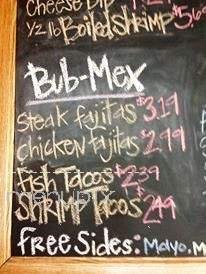 Cheese Dip
1/2 lb Boiled Shrimp $5.69
Bub-Mex
Steak fajitas $3.19
Chicken fajitas $2.99
Fish Tacos $2.39
Shrimp Tacos $2.49
Free Sides: Mayo.